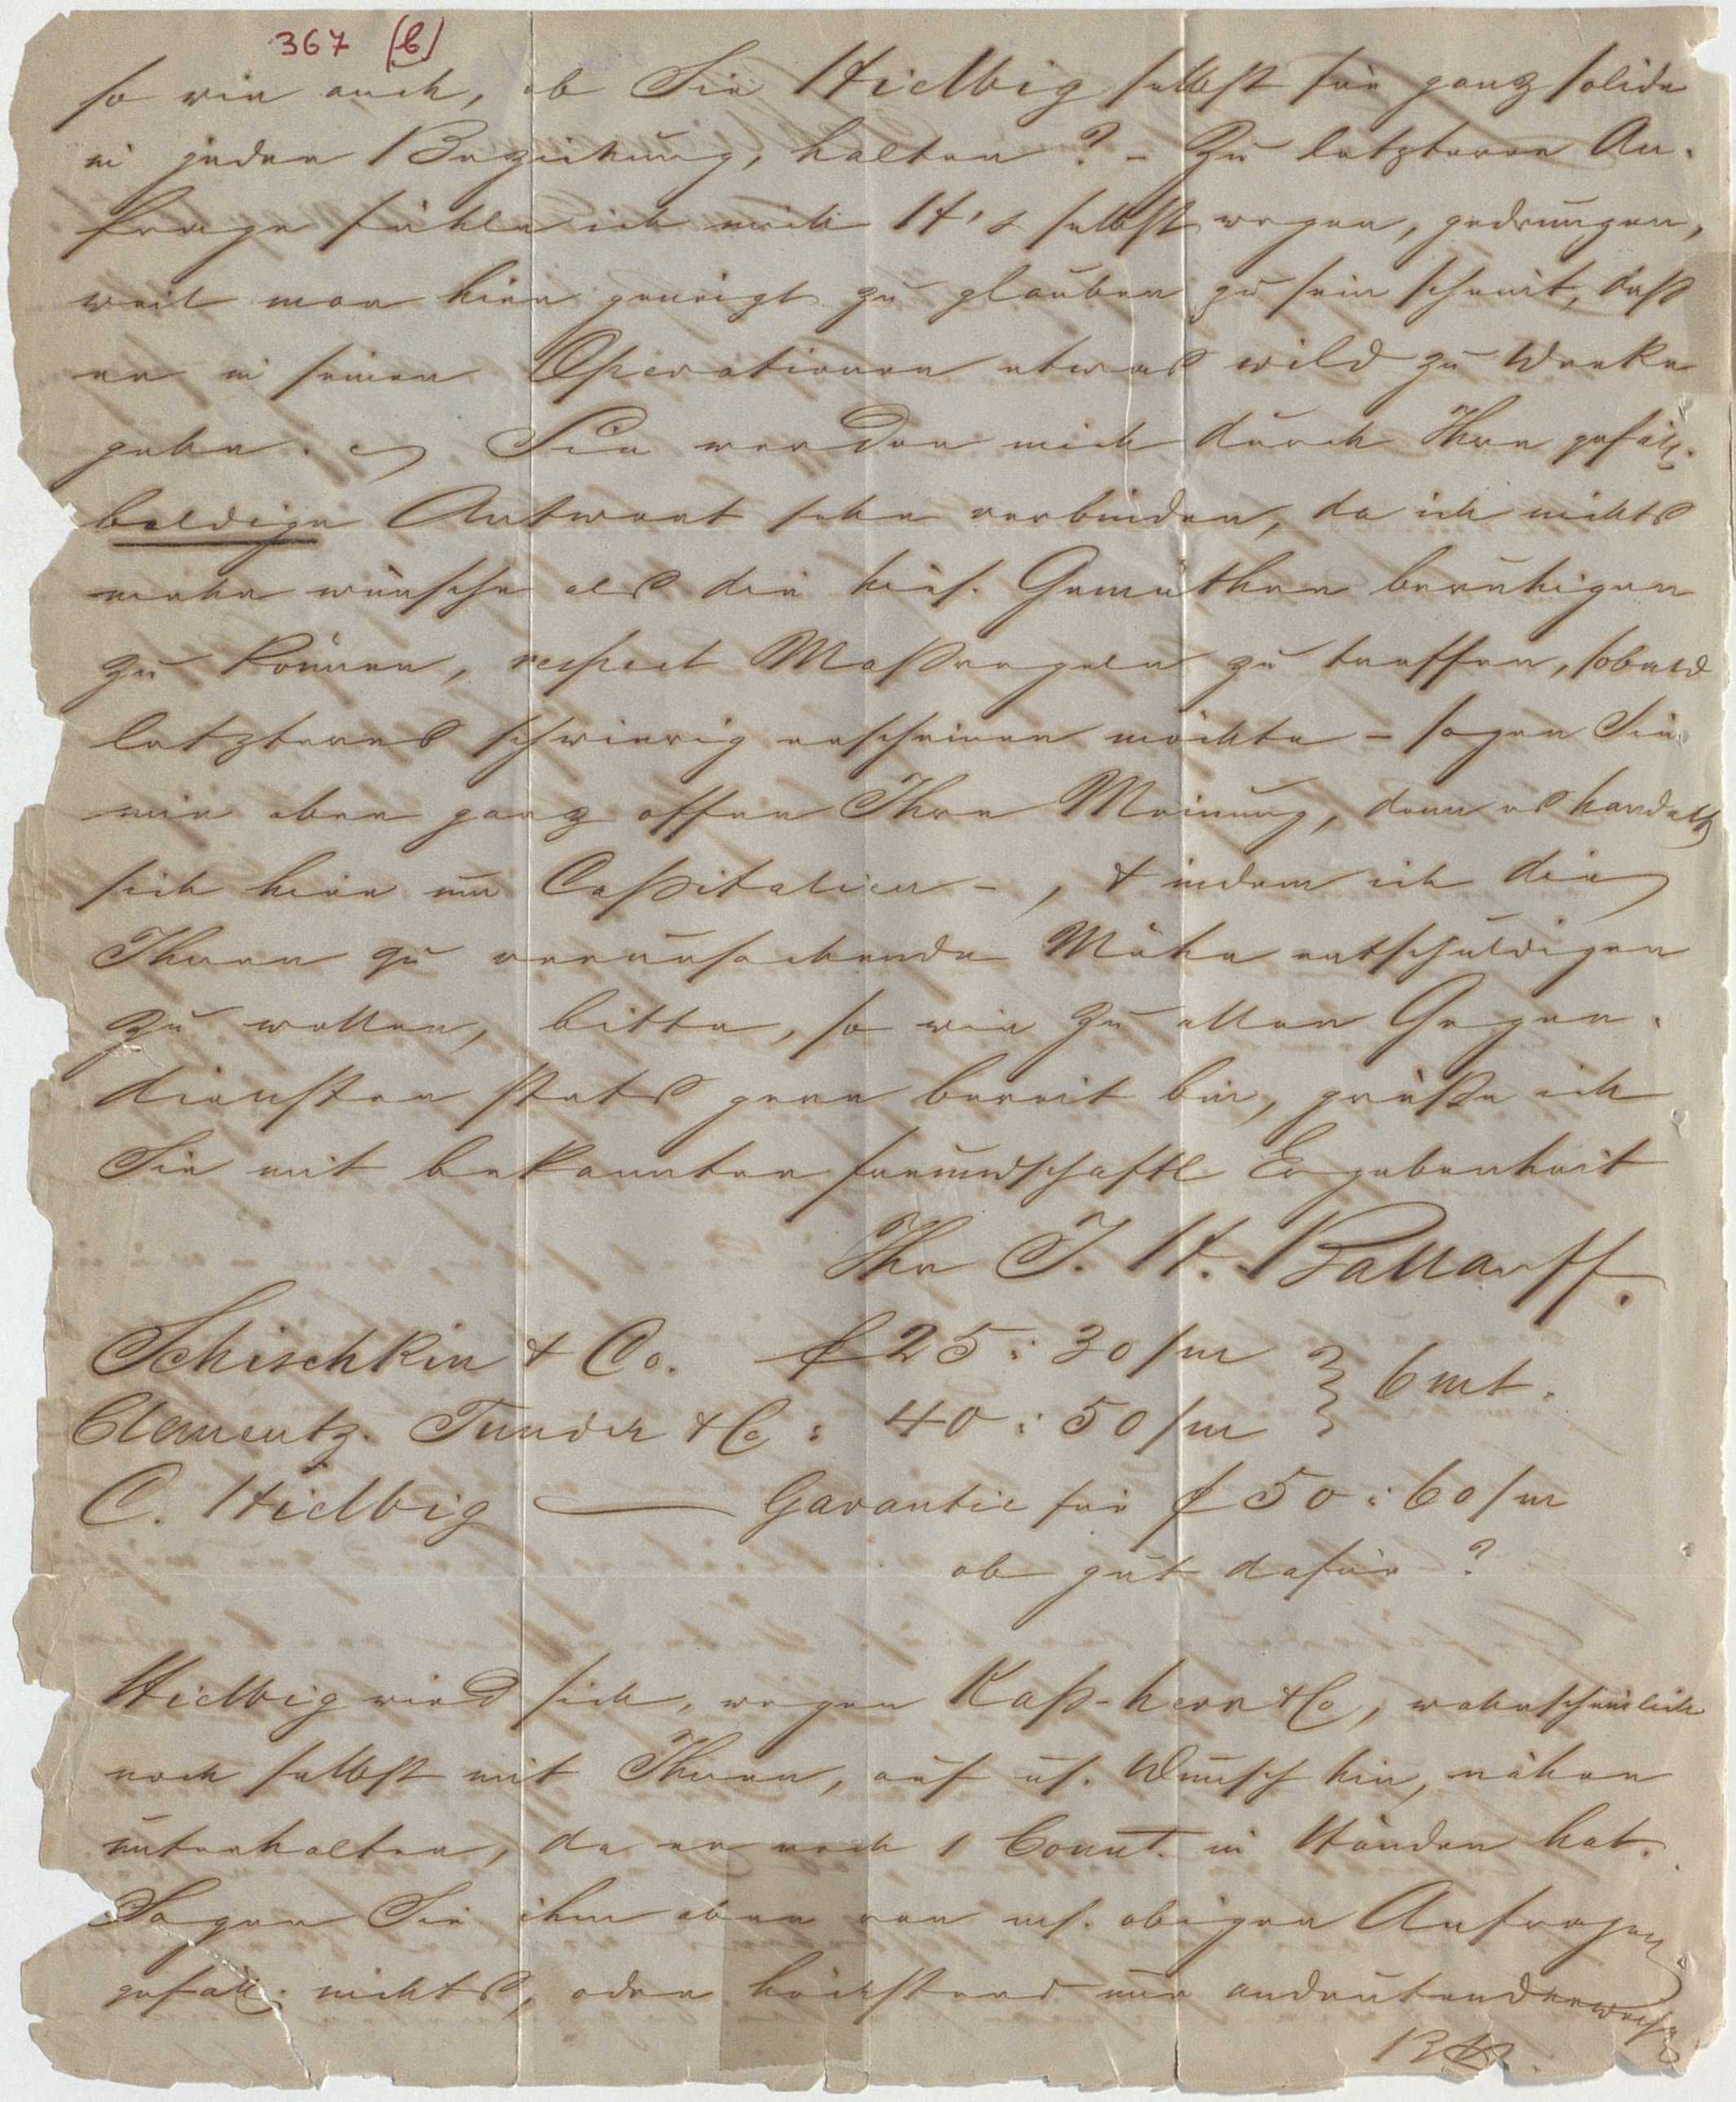 367 (b)
so wie auch, ob Sie Hielbig selbst für ganz solide
in jeder Beziehung, halten? – Zu letzterer An-
frage fühle ich mich H's selbst wegen, gedrungen,
weil man hier geneigt zu glauben zu sein scheint, daß
er in seinen Operationen etwas wild zu Werke
gehe. Sie werden mich durch Ihre gefäll.
baldige Antwort sehr verbinden, da ich nichts
mehr wünsche als die hies. Gemüther beruhigen
zu können, respect Maßregeln zu treffen, sobald
letzteres schwierig erscheinen möchte – sagen Sie
mir aber ganz offen Ihre Meinung, denn es handelt
sich hier um Capitalien –, & indem ich die
Ihnen zu verursachende Mühe entschuldigen
zu wollen, bitte, so wie zu allen Gegen-
diensten stets gern bereit bin, grüße ich
Sie mit bekannter freundschaftl Ergebenheit
Ihr J. H. Ballauff.
Schischkin & Co. £ 25 : 30/m } 6 mt.
Clementz. Tunder & Co : 40 : 50/m
C. Hielbig — Garantie für £ 50 : 60/m
ob gut dafür?
Hielbig wird sich, wegen Kap-herr & Co, wahrscheinlich
noch selbst mit Ihnen, auf us. Wunsch hin, näher
unterhalten, da er noch 1 Connt. in Händen hat.
Sagen Sie ihm aber von ms. obigen Anfragen
gefäll. nichts, oder höchstens nur andeutenderweise